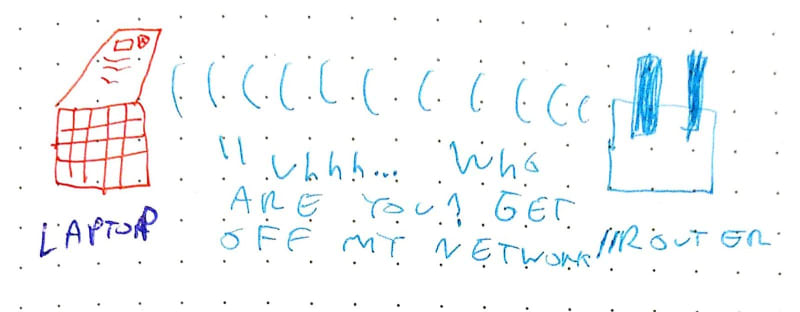 "Uhhh... Who
ARE YOU? GET
OFF MY NETWORK"
LAPTOP
ROUTER